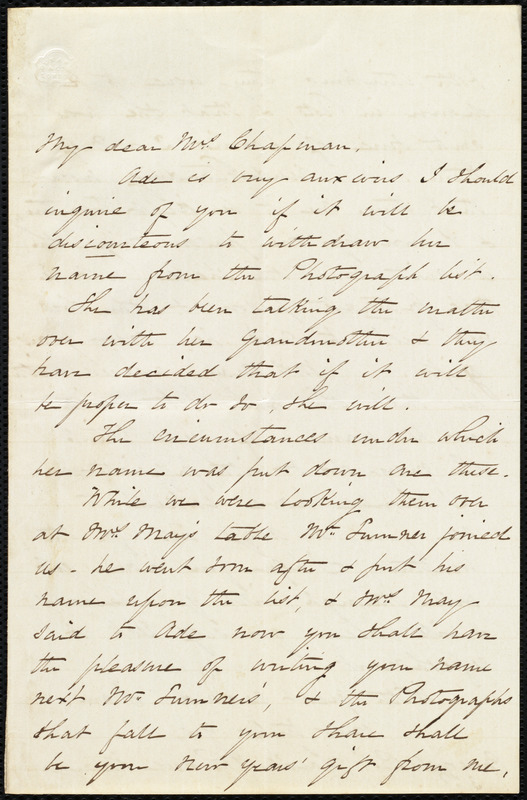 My dear Mrs. Chapman,
Ade is very anxious I should
inquire of you if it will be
discourteous to withdraw her
name from the Photograph list.
She has been talking the matter
over with her Grandmother & they
have decided that if it will
be proper to do so, she will.
The circumstances under which
her name was put down are these.
While we were looking them over
at Mrs. May's table Mr. Sumner joined
us - he went soon after & put his
name upon the list, & Mrs. May
said to Ade now you shall have
the pleasure of writing your name
next Mr. Sumner's, & the Photographs
that fall to your share shall
be your New Years' gift from me,